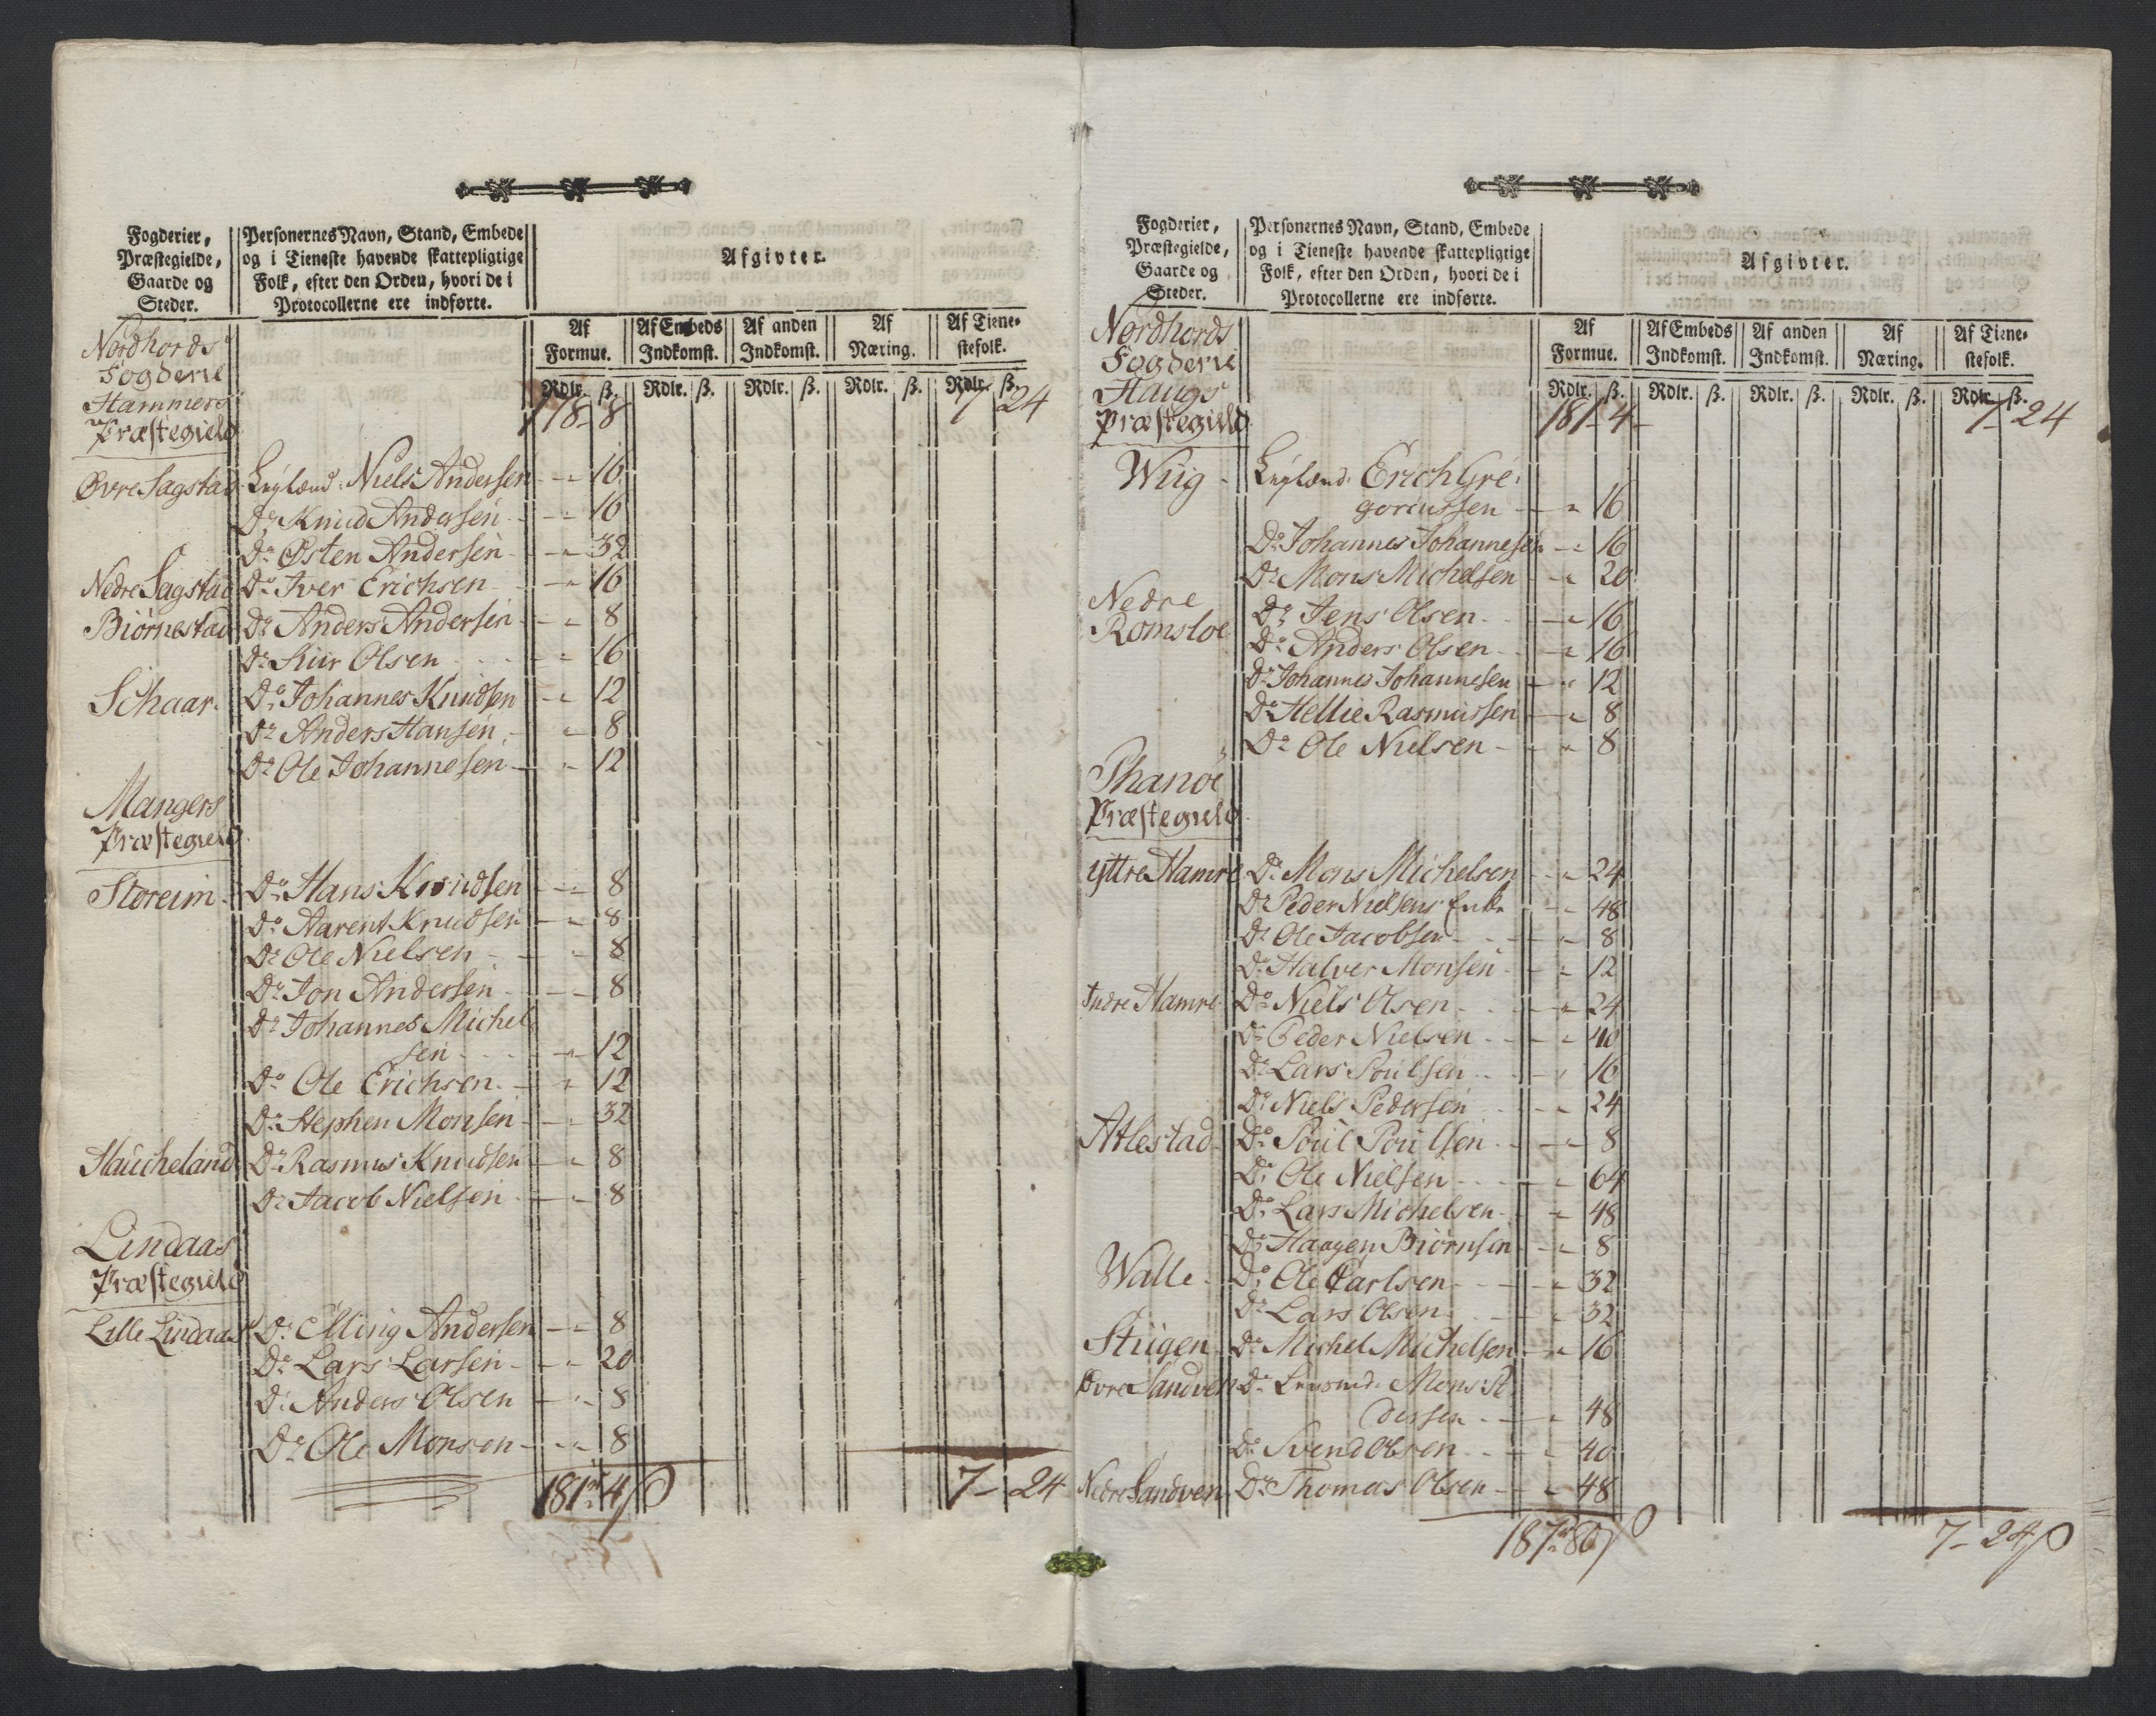 Fogderier,
Præstegielde,
Gaarde og
Steder.
Personernes Navn, Stand, Embede
og i Tieneste havende skattepligtige
Folk, efter den Orden, hvori de i
Protocollerne ere indførte.
Afgivter.
Af Formue.
Af Embeds Indkomst.
Af anden Indkomst.
Af Næring.
Af Tienestefolk.
Rdlr. ß. Rdlr. ß. Rdlr. ß. Rdlr. ß. Rdlr. ß.
Nordhords
Fogderie
Hammers
Præstegield
178 - 8 7 - 24
Øvre Sagstad Niels Andersen - - 16
Do Knud Andersen - - 16
Do Østen Andersen - - 32
Nedre Sagstad Do Iver Erichsen - - 16
Biørnestad Do Anders Andersen - - 8
Do Siur Olsen - - 16
Schaar Do Johannes Knudsen - - 12
Do Anders Hansen - - 8
Do Ole Johannesen - - 12
Mangers
Præstegield
Storeim Do Hans Knudsen - - 8
Do Aarent Knudsen - - 8
Do Ole Nielsen - - 8
Do Jon Andersen - - 8
Do Johannes Michel
sen - - 12
Do Ole Erichsen - - 12
Do Stephen Monsen - - 32
Haucheland Do Rasmus Knudsen - - 8
Do Jacob Nielsen - - 8
Lindaas
Præstegield
Lille Lindaas Do Elling Andersen - - 8
Do Lars Larsen - - 20
Do Anders Olsen - - 8
Do Ole Monsen - - 8
181 - 4 ß 7 - 24
Fogderier,
Præstegielde,
Gaarde og
Steder.
Personernes Navn, Stand, Embede
og i Tieneste havende skattepligtige
Folk, efter den Orden, hvori de i
Protocollerne ere indførte.
Afgivter.
Af Formue.
Af Embeds Indkomst.
Af anden Indkomst.
Af Næring.
Af Tienestefolk.
Rdlr. ß. Rdlr. ß. Rdlr. ß. Rdlr. ß. Rdlr. ß.
Nordhords
Fogderie
Haugs
Præstegield
181 - 4 - 7 - 24
Wiig Erich Gre
goriussen - - 16
Do Johannes Johannesen - - 16
Do Mons Michelsen - - 20
Nedre
Romsloe Do Jens Olsen - - 16
Do Anders Olsen - - 16
Do Johannes Johannesen - - 12
Do Hellie Rasmussen - - 8
Do Ole Nielsen - - 8
Phanøe
Præstegield
Yttre Hamre Do Mons Michelsen - - 24
Do Peder Nielsens Enke - - 48
Do Ole Jacobsen - - 8
Do Halver Monsen - - 12
Indre Hamre Do Niels Olsen - - 24
Do Peder Nielsen - - 40
Do Lars Poulsen - - 16
Do Niels Pedersen - - 24
Atlestad Do Poul Poulsen - - 8
Do Ole Nielsen - - 64
Do Lars Michelsen - - 48
Do Haagen Biørnsen - - 8
Walle Do Ole Carlsen - - 32
Do Lars Olsen - - 32
Stiigen Do Michel Michelsen - - 16
Øvre Sandven Do Mons Pe
dersen - - 48
Do Svend Olsen - - 40
Nedre Sandven Do Thomas Olsen - - 48
187 - 80 ß 7 - 24 ß